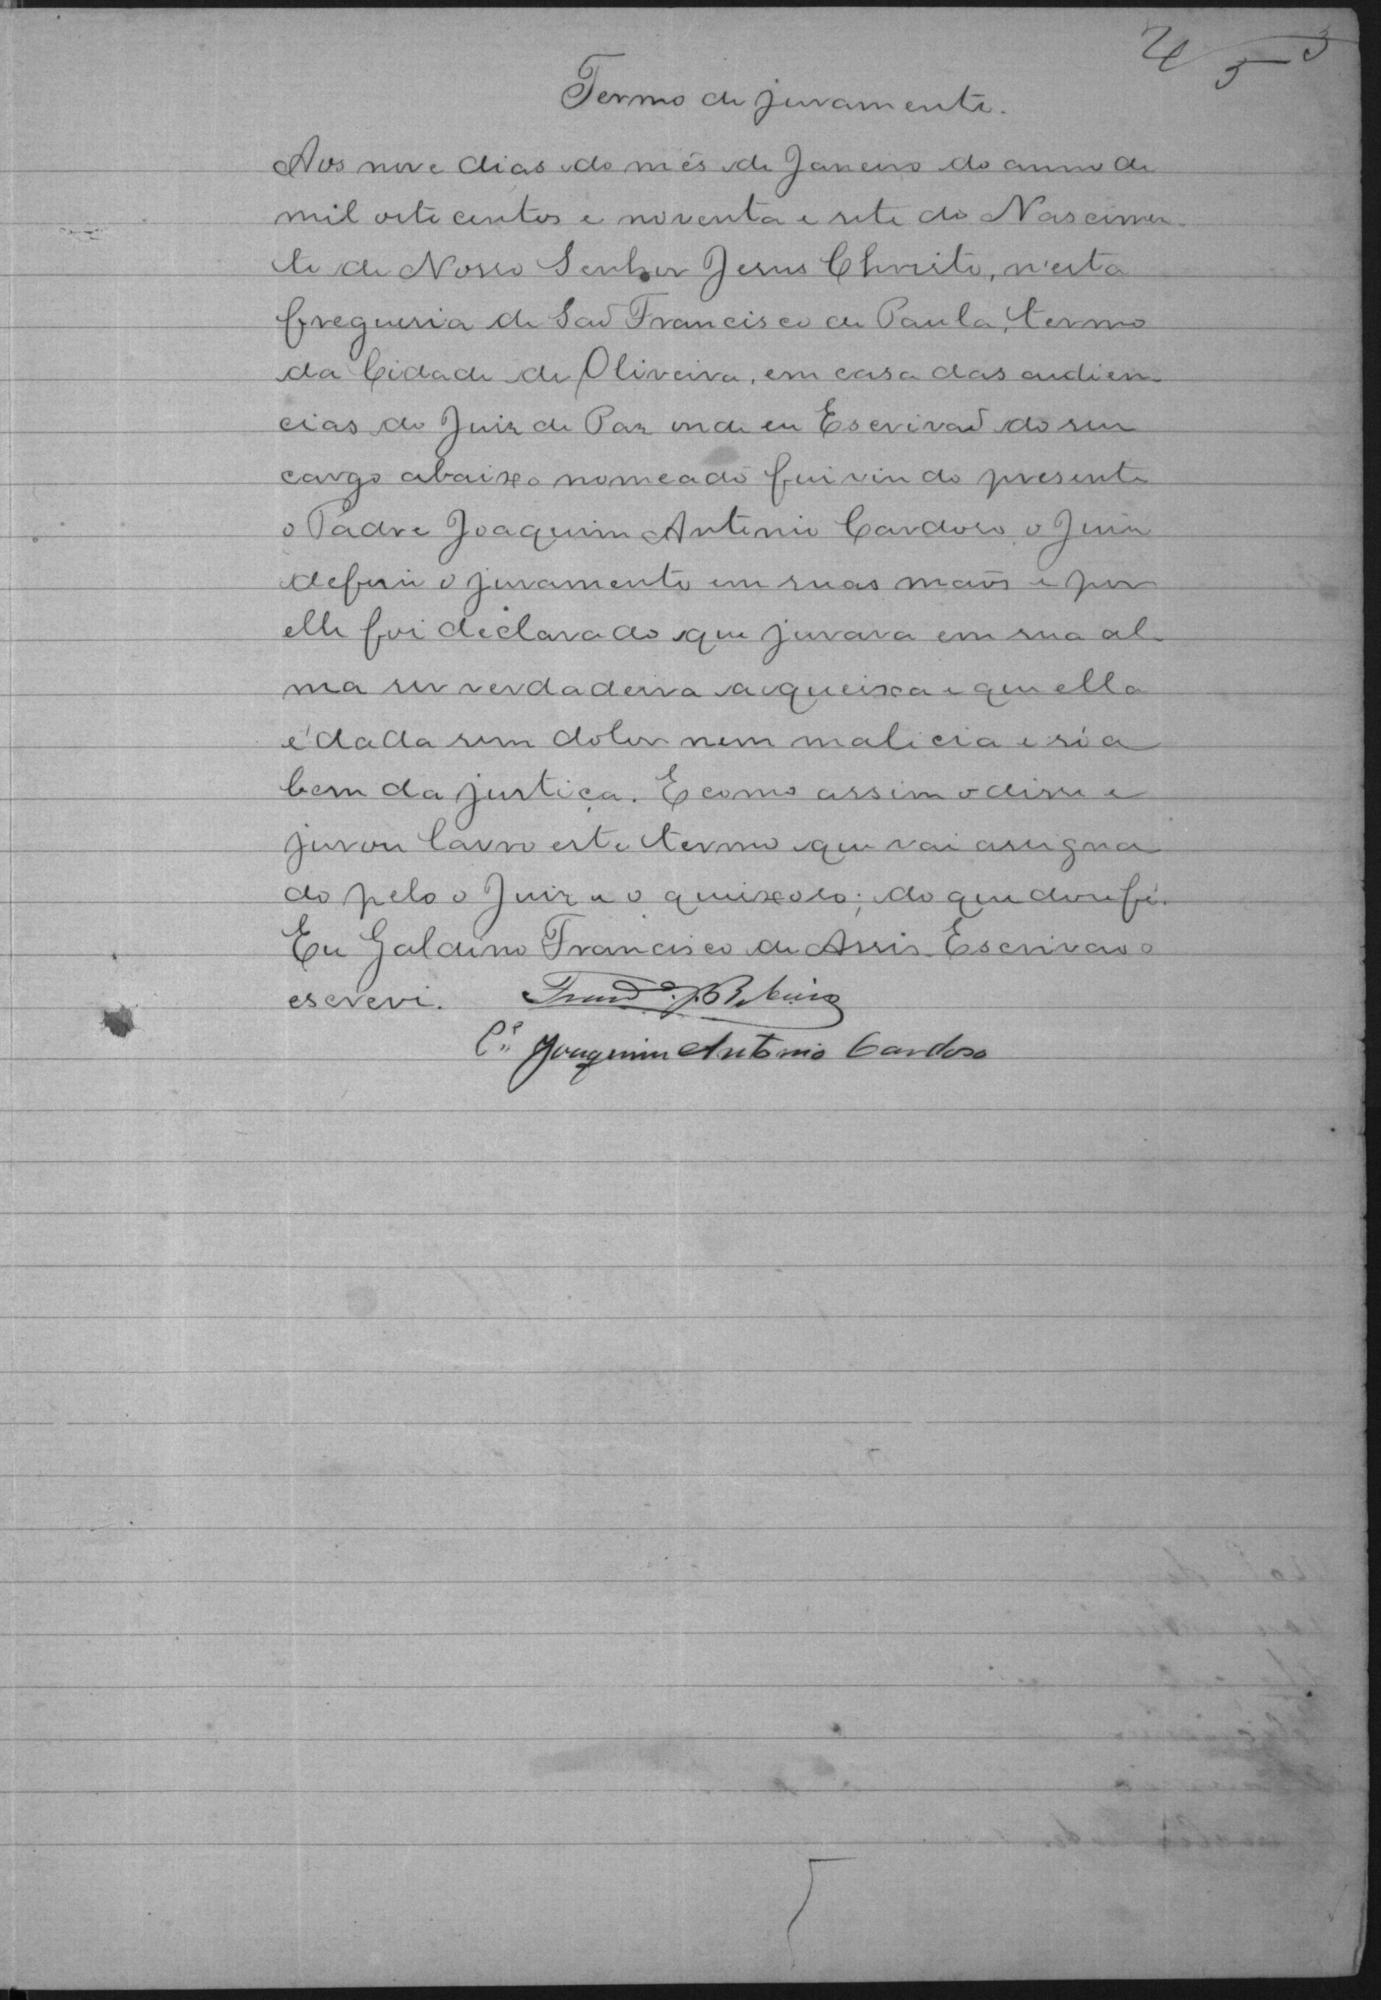 4 5 3
Termo de juramento.
Aos nove dias do mês de Janeiro do anno de
mil oite centos e noventa e sete do Nascimen-
to de Nosso Senhor Jesus Christo, n'esta
freguesia de Saõ Francisco de Paula, termo
da Cidade de Oliveira, em casa das audien-
cias do Juiz de Paz onde eu Escrivaõ do seu
cargo abaixo nomeado fui vindo presente
o Padre Joaquim Antonio Cardoso, o Juiz
deferiu o juramento em suas maõs e por
elle foi declarado que jurava em sua al-
ma ser verdadeira a queixa e que ella
é dada sem dolor nem malicia e só a
bem da justiça. E como assim o disse e
jurou lavro este termo que vai assigna
do pelo o Juiz e o queixoso; do que dou fé.
Eu Galdino Francisco de Assis Escrivao o
escrevi.
Pe. Joaquim Antonio Cardoso